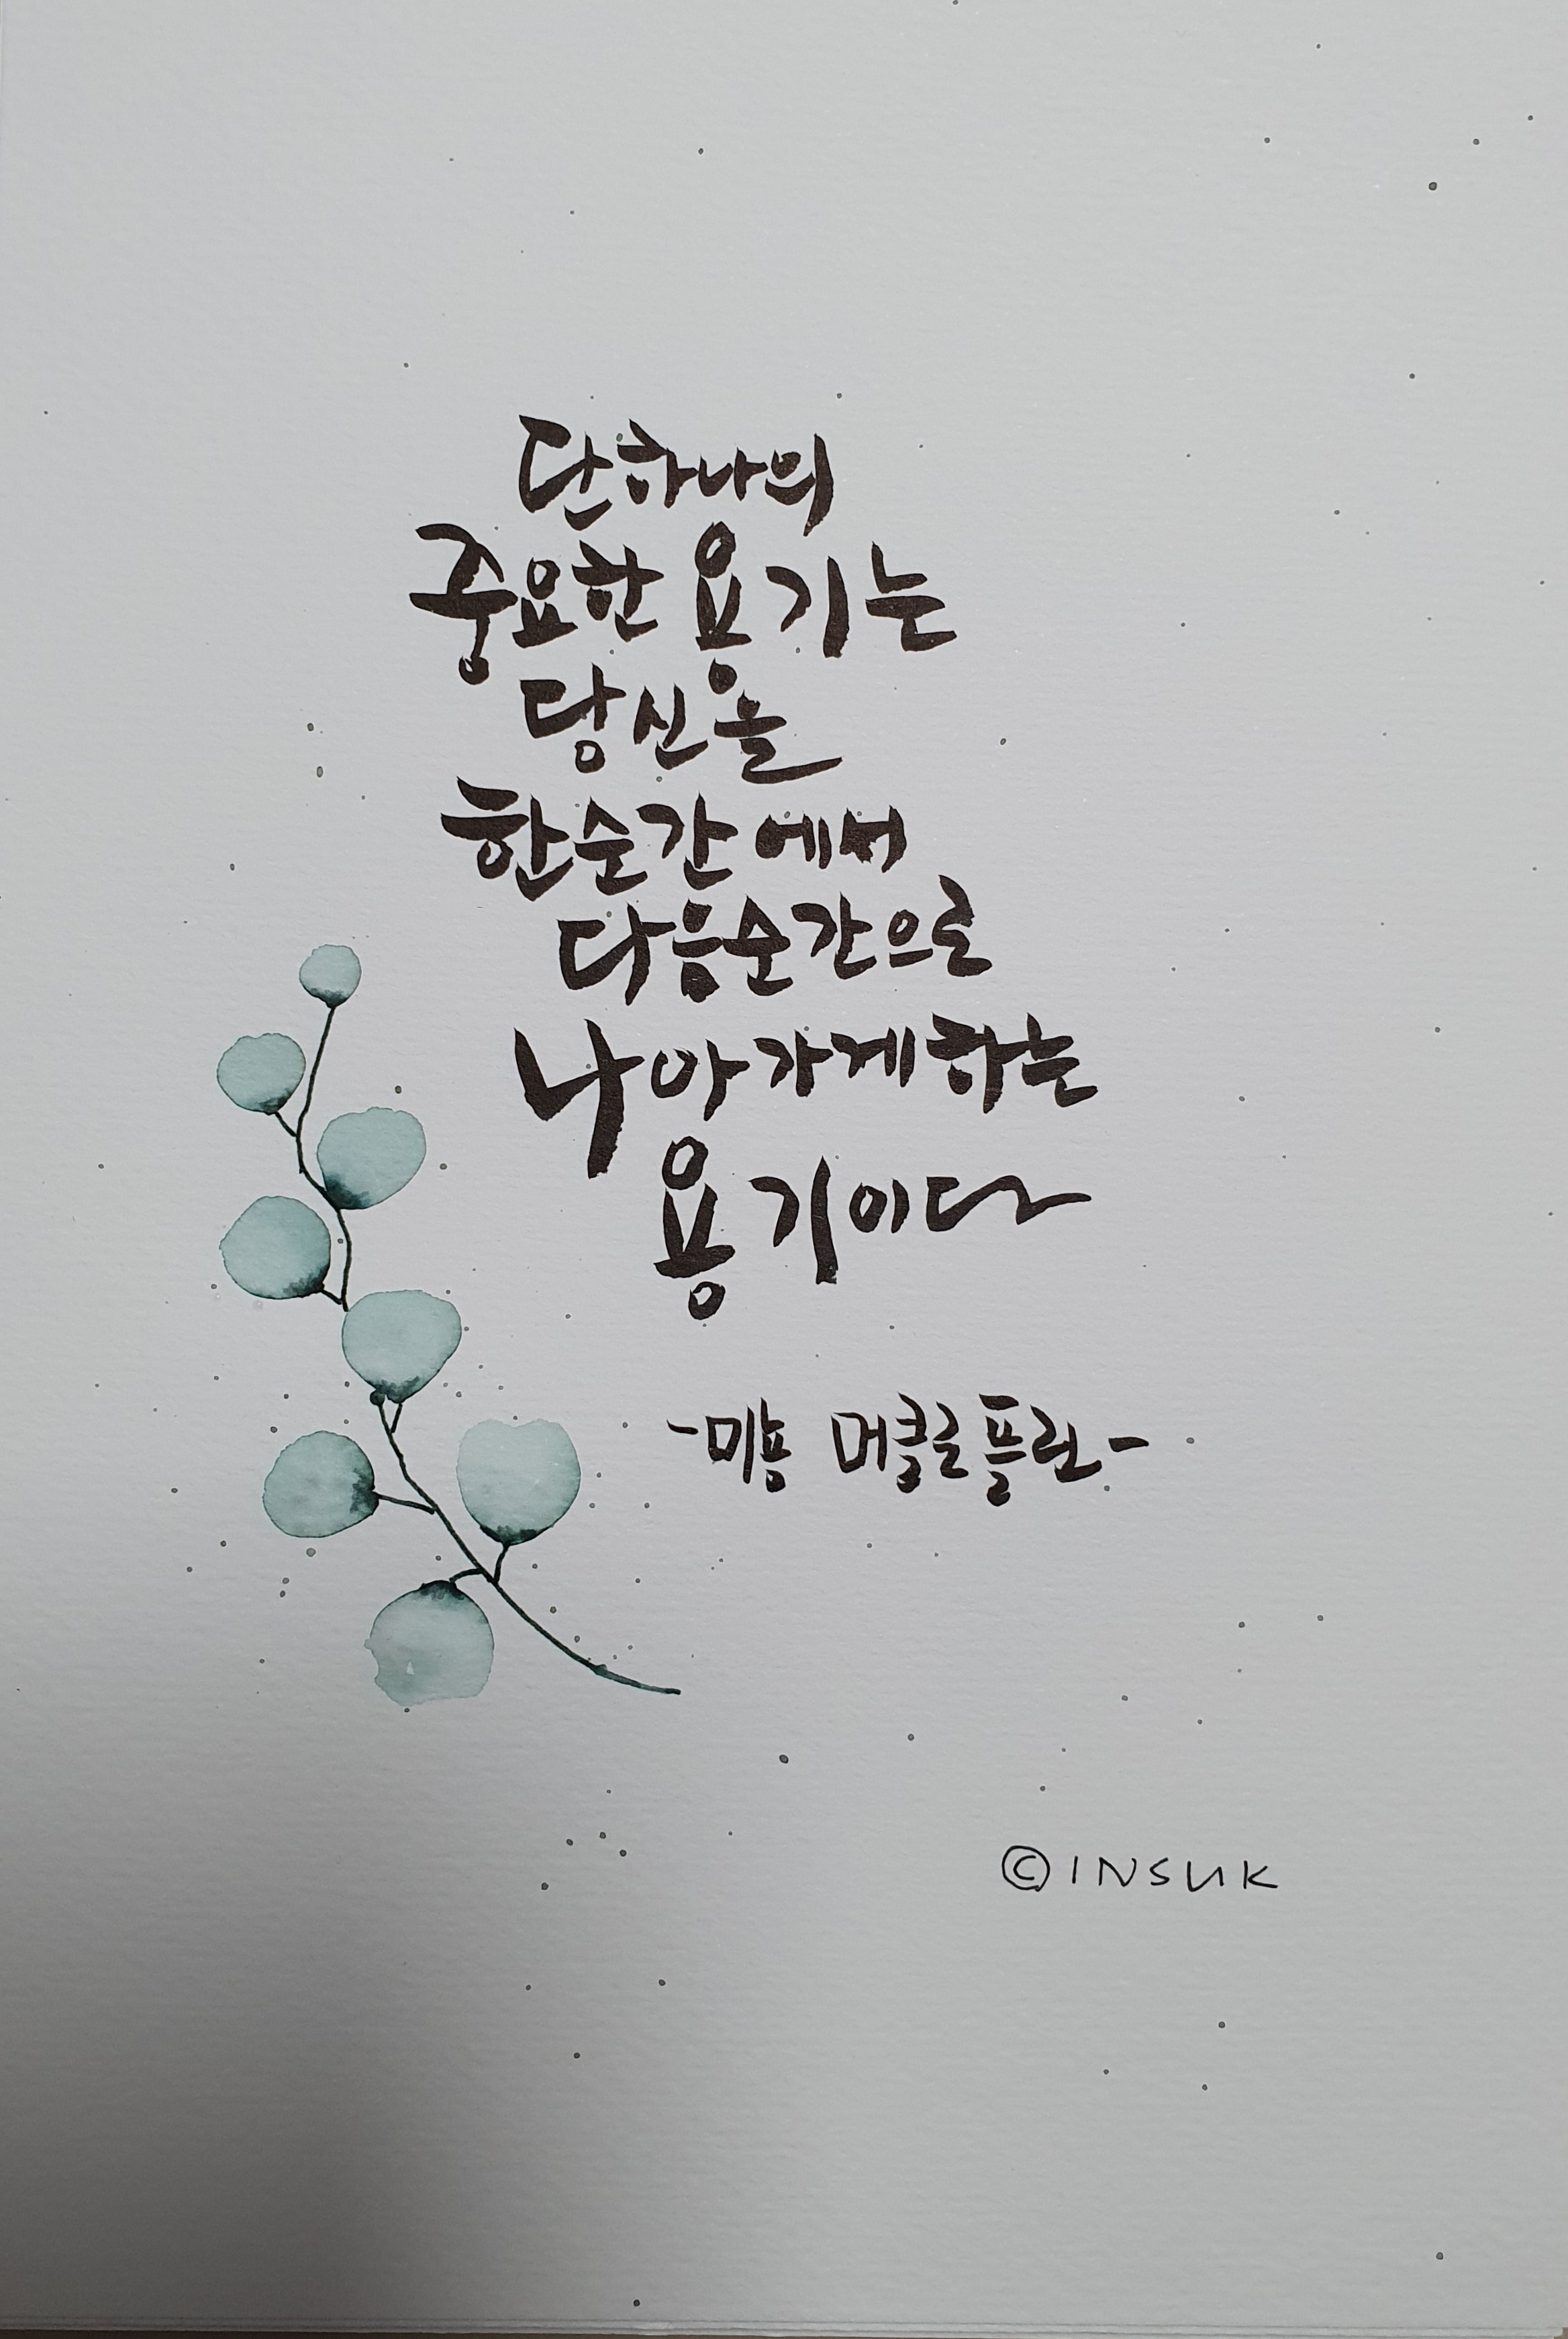 단하나의
중요한 용기는
당신을
한순간에서
다음순간으로
나아가게하는
용기이다
-미뇽 머클로플린-
©INSUK